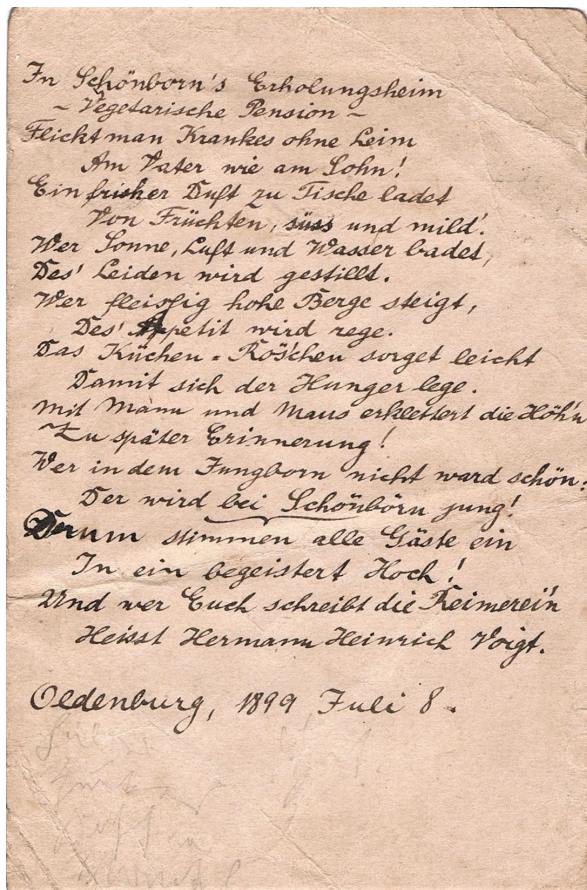 In Schönborn's Erholungsheim
- Vegetarische Pension -
Flickt man Krankes ohne Leim
Am Vater wie am Sohn!
Ein frisher Duft zu Tische ladet
Von Früchten, süss und mild.
Wer Sonne, Luft und Wasser badet,
Des' Leiden wird gestillt.
Wer fleissig hohe Berge steigt,
Des' Appetit wird rege.
Das Küchen-Rös'chen sorget leicht
Damit sich der Hunger lege.
Mit Mann und Maus erklettert die Höh'n
Zu später Erinnerung!
Wer in dem Jungborn nicht ward schön,
Der wird bei Schönbörn jung!
Drum stimmen alle Gäste ein
In ein begeistert Hoch!
Und wer Euch schreibt die Reimerei'n
Heisst Hermann Heinrich Voigt.
Oldenburg, 1899 Juli 8.